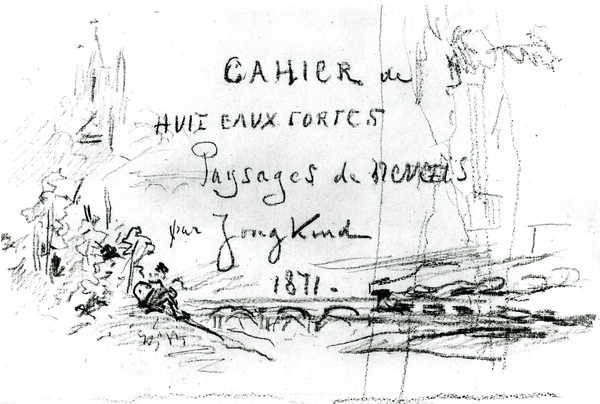 CAHIER de
HUIT EAUX FORTES
Paysages de NEVERS
par Jongkind
1871.